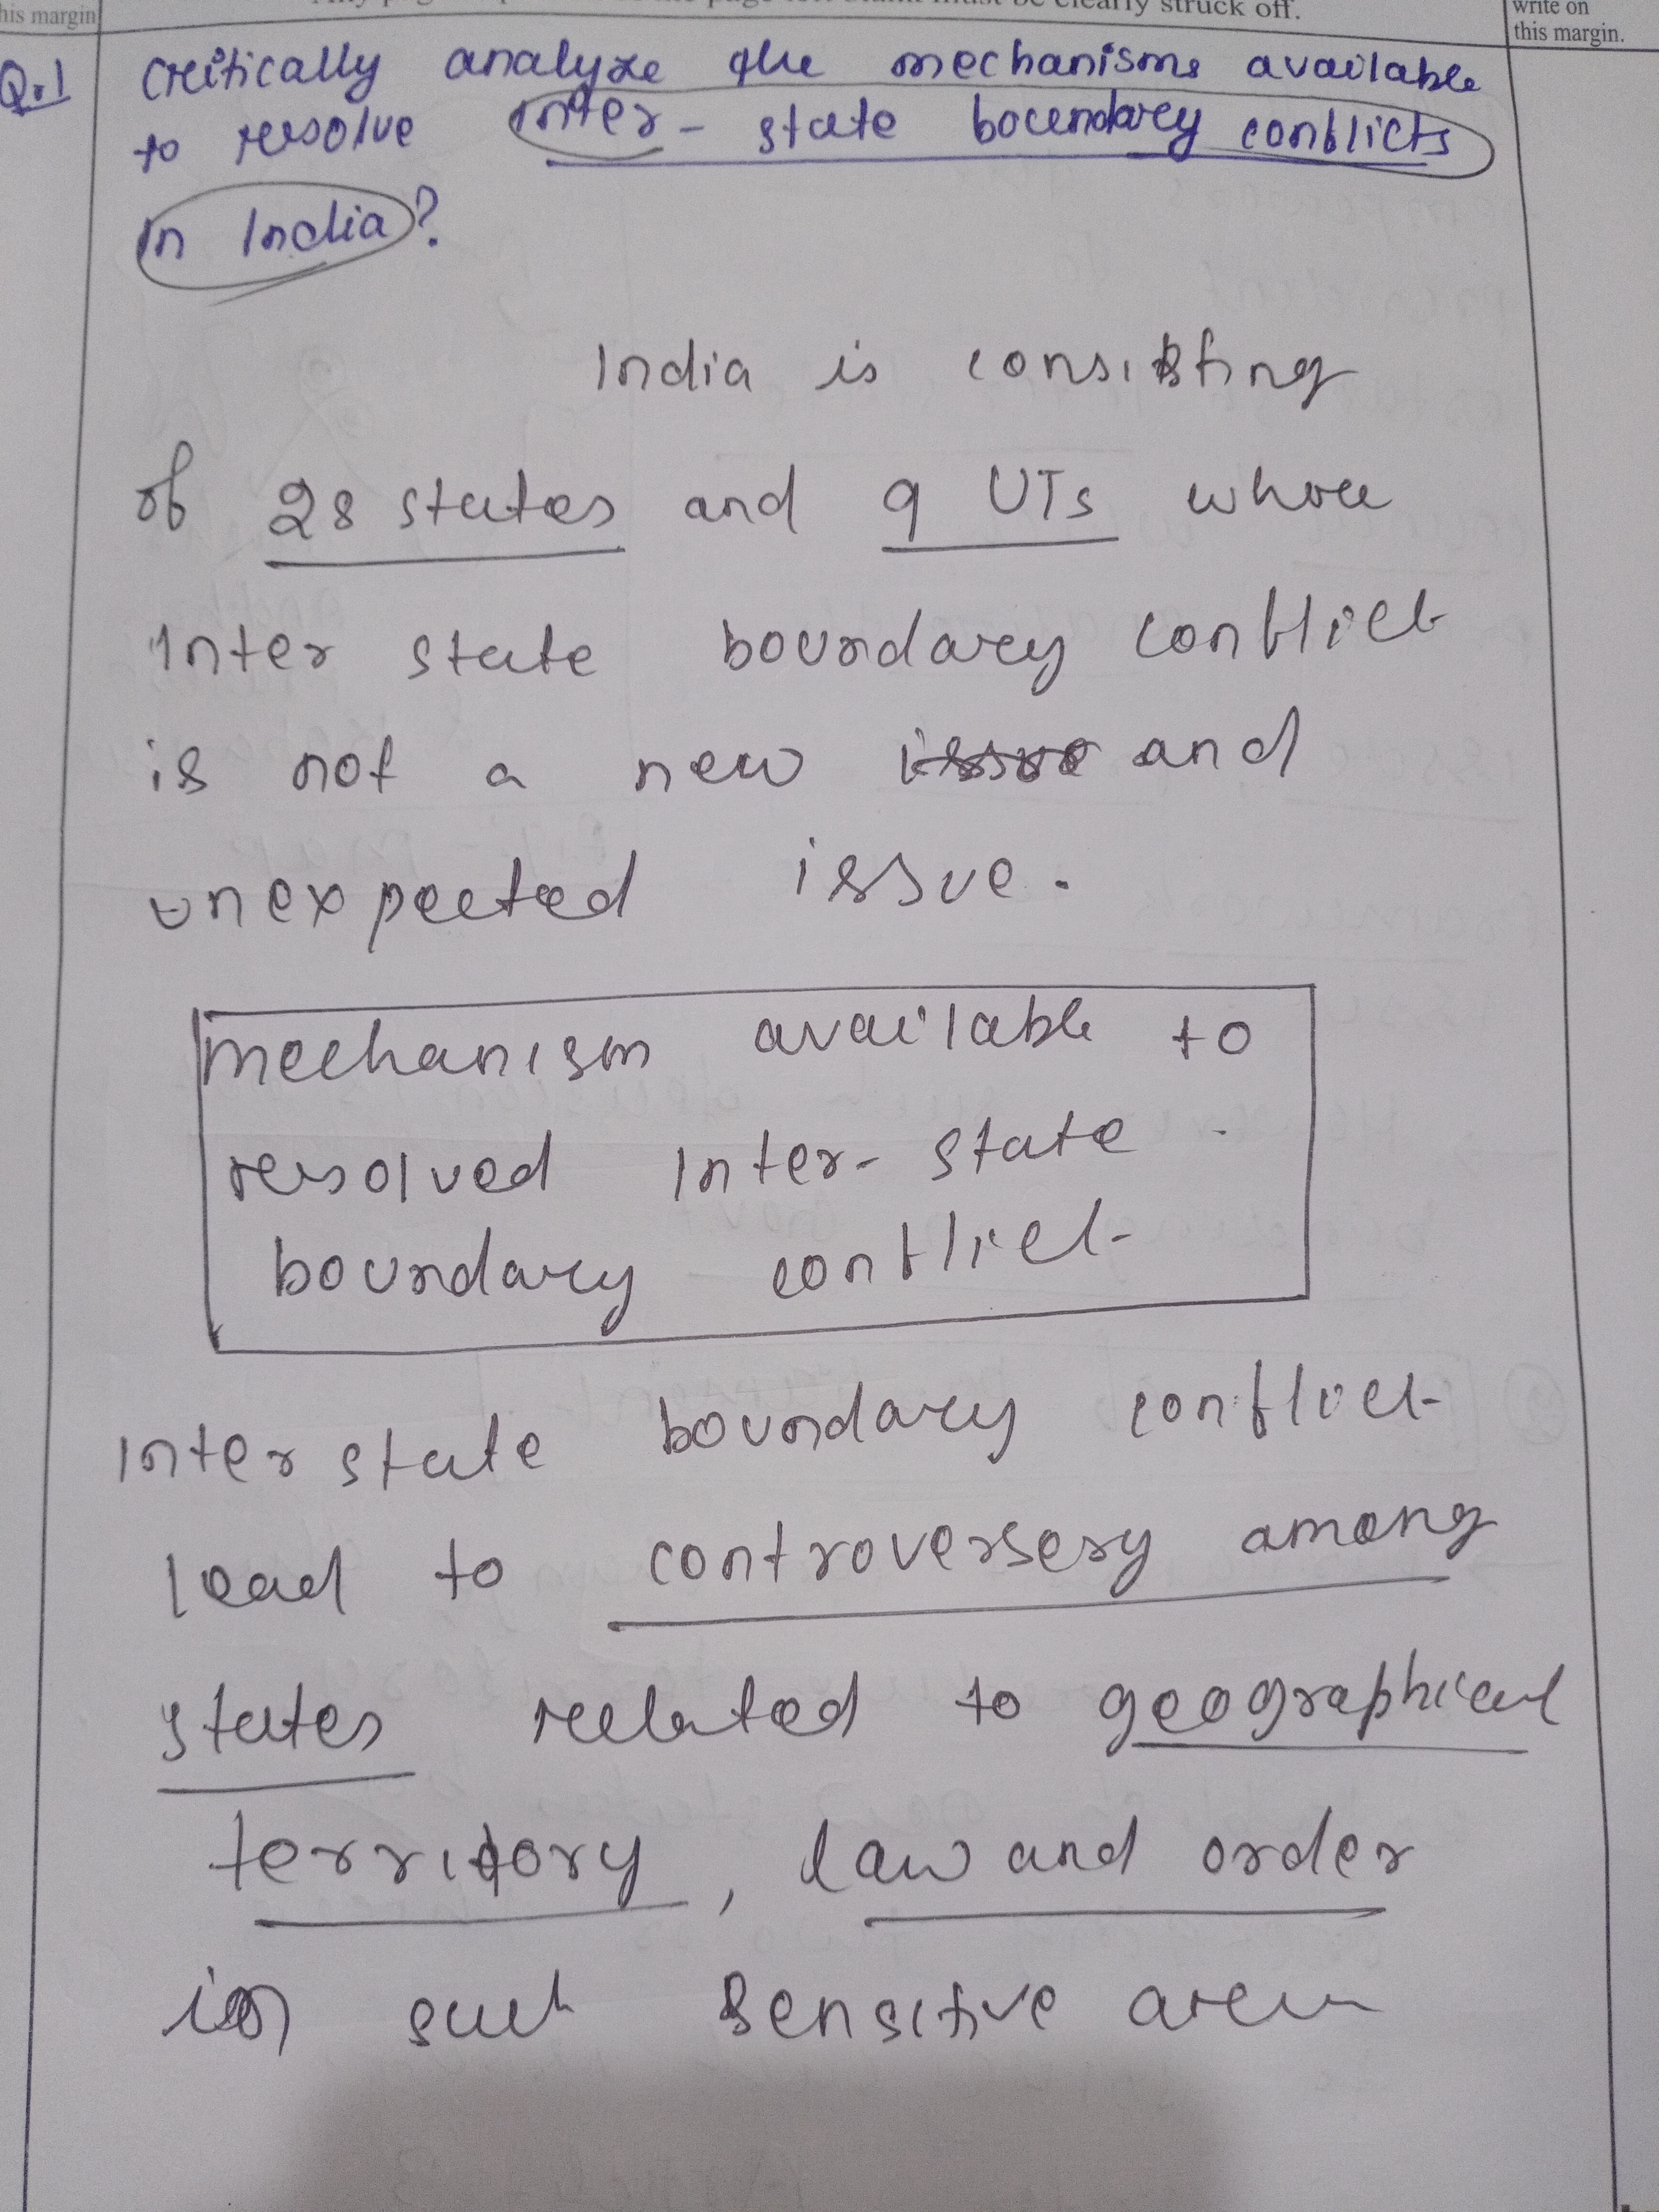 his margin
be clearly struck off.
write on
this margin.
Q.1 Critically analyze the mechanisms available
to resolve inter-state boundary conflicts
in India?
India is consisting
of 28 states and 9 UTs whose
inter state boundary conflict
is not a new issue and
unexpected issue.
mechanism available to
resolved Inter-state
boundary conflict
Inter state boundary conflict
lead to controversery among
states related to geographical
territory, law and order
in such sensitive area